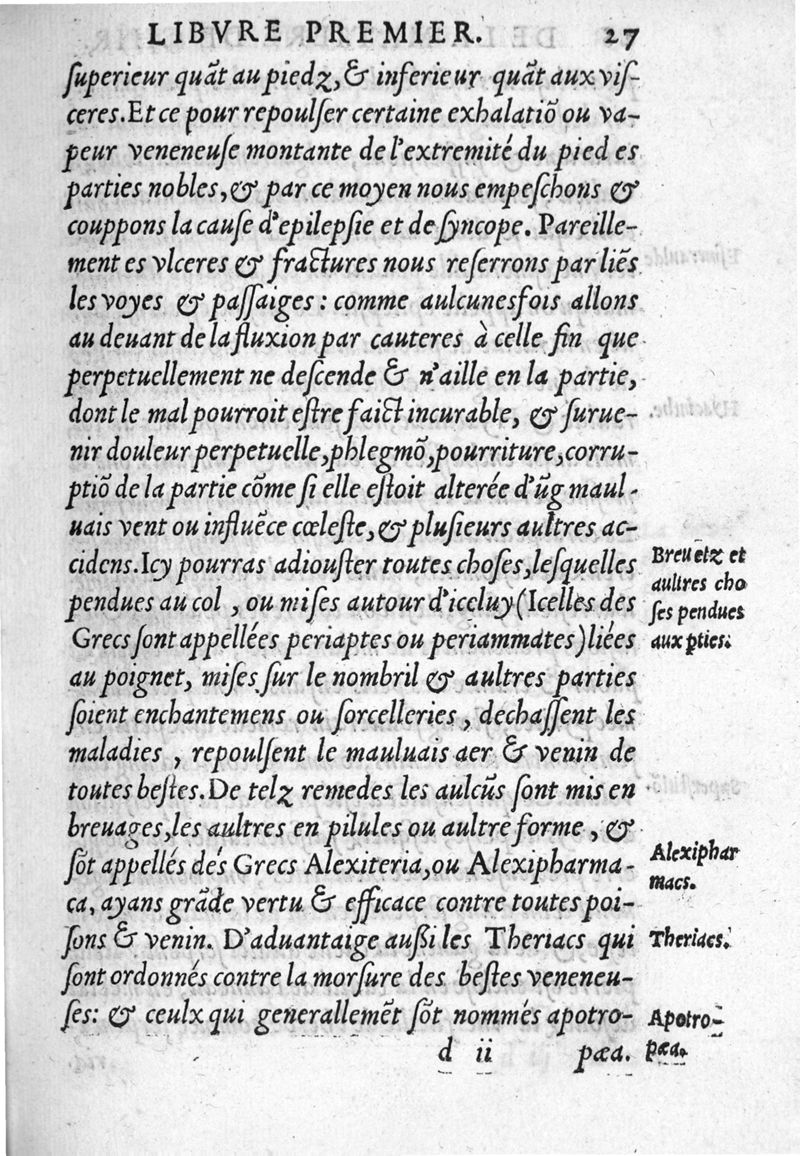 LIBVRE PREMIER. 27
ſuperieur quãt au piedz, & inferieur quãt aux viſ-
ceres. Et ce pour repoulſer certaine exhalatiõ ou va-
peur veneneuſe montante de l'extremité du pied es
parties nobles, & par ce moyen nous empeſchons &
couppons la cauſe d'epilepſie et de ſyncope. Pareille-
ment es vlceres & fractures nous reſerrons par liẽs
les voyes & paſſaiges : comme aulcunesfois allons
au deuant de la fluxion par cauteres à celle fin que
perpetuellement ne deſcende & n'aille en la partie,
dont le mal pourroit eſtre faict incurable, & ſurue-
nir douleur perpetuelle, phlegmõ, pourriture, corru-
ptiõ de la partie cõme ſi elle eſtoit alterée d'ũg maul-
uais vent ou influẽce cœleſte, & pluſieurs aultres ac-
cidens. Icy pourras adiouſter toutes choſes, leſquelles
pendues au col , ou miſes autour d'icelluy (Icelles des
Grecs ſont appellées periaptes ou periammates) liées
au poignet, miſes ſur le nombril & aultres parties
ſoient enchantemens ou ſorcelleries , dechaſſent les
maladies , repoulſent le mauluais aer & venin de
toutes beſtes. De telz remedes les aulcũs ſont mis en
breuages, les aultres en pilules ou aultre forme , &
ſõt appellés dés Grecs Alexiteria, ou Alexipharma-
ca, ayans grãde vertu & efficace contre toutes poi-
ſons & venin. D'aduantaige außi les Theriacs qui
ſont ordonnés contre la morſure des beſtes veneneu-
ſes: & ceulx qui generallemẽt ſõt nommés apotro-
d ii pæa.
Breuetz et
aultres cho
ſes pendues
aux ꝑties.
Alexiphar
macs.
Theriacs.
Apotro-
pæa.